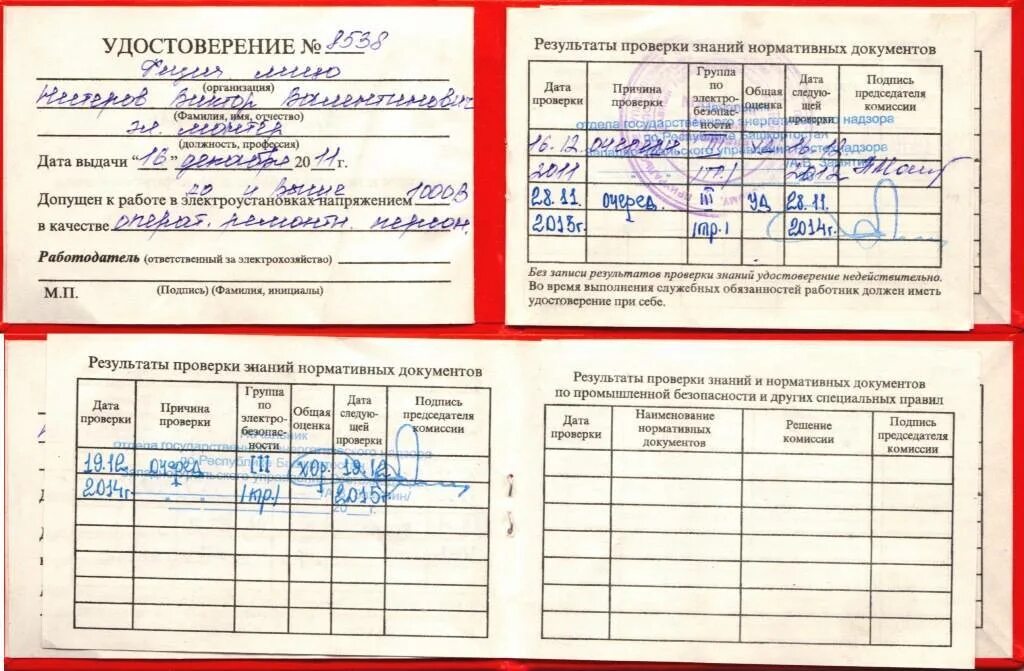 УДОСТОВЕРЕНИЕ № 8538
Физич. лицо
(организация)
Нистеров Виктор Валентинович
(Фамилия, имя, отчество)
эл. монтер
(должность, профессия)
Дата выдачи "16" декабря 2011 г.
до и выше 1000В
Допущен к работе в электроустановках напряжением
в качестве операт. ремонтн. персон.
Работодатель (ответственный за электрохозяйство)
М.П. (Подпись) (Фамилия, инициалы)
Результаты проверки знаний нормативных документов
Дата проверки
Причина проверки
Группа по электро-безопас-ности
Общая оценка
Дата следую-щей проверки
Подпись председателя комиссии
отдела государственного энергетического надзора
по Республике Башкортостан
16.12 2011 очередная III 16.12 2012
28.11. 2013г. очеред. III /тр./ уд 28.11. 2014г.
Без записи результатов проверки знаний удостоверение недействительно.
Во время выполнения служебных обязанностей работник должен иметь
удостоверение при себе.
Результаты проверки знаний нормативных документов
Дата проверки
Причина проверки
Группа по электро-безопас-ности
Общая оценка
Дата следую-щей проверки
Подпись председателя комиссии
Начальник
отдела государственного энергетического надзора
по Республике Башкортостан
19.12. 2014г. очеред III /тр./ хор. 19.12 2015г
Результаты проверки знаний и нормативных документов
по промышленной безопасности и других специальных правил
Дата проверки
Наименование нормативных документов
Решение комиссии
Подпись председателя комиссии